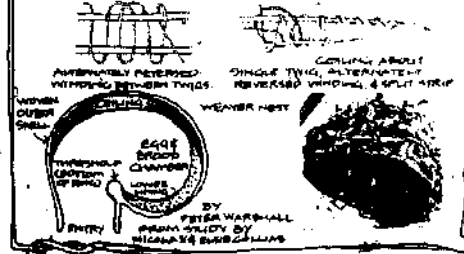 ALTERNATELY REVERSED
WINDING BETWEEN TWIGS.
COILING ABOUT
SINGLE TWIG, ALTERNATELY
REVERSED WINDING, & SPLIT STRIP
WEAVER NEST
WOVEN
OUTER
SHELL
CEILING
EGG &
BROOD
CHAMBER
THRESHOLD
(BOTTOM
OF RING)
LOWER
ENTRY
BY
PETER WARSHALL
FROM STUDY BY
NICHOLAS & ELSIE COLLIAS